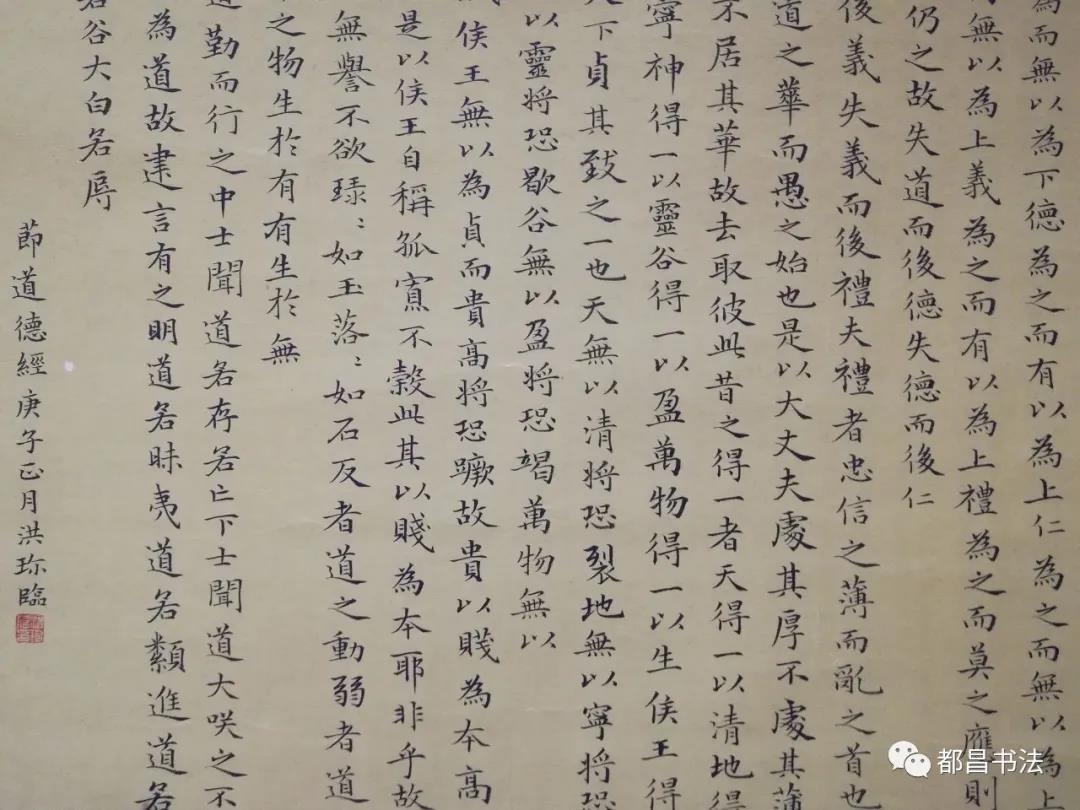 為而無以為下德為之而有以為上仁為之而無以為上
而無以為上義為之而有以為上禮為之而莫之應則
仍之故失道而後德失德而後仁
後義失義而後禮夫禮者忠信之薄而亂之首也
道之華而愚之始也是以大丈夫處其厚不處其薄
不居其華故去取彼此昔之得一者天得一以清地得
寧神得一以靈谷得一以盈萬物得一以生侯王得
天下貞其致之一也天無以清將恐裂地無以寧將恐
以靈將恐歇谷無以盈將恐竭萬物無以
侯王無以為貞而貴高將恐蹶故貴以賤為本高
是以侯王自稱孤寡不穀此其以賤為本耶非乎故
無譽不欲琭〻如玉落〻如石反者道之動弱者道
之物生於有有生於無
道勤而行之中士聞道若存若亡下士聞道大咲之不
為道故建言有之明道若昧夷道若纇進道若
若谷大白若辱
節道德經庚子正月洪珎臨
都昌书法